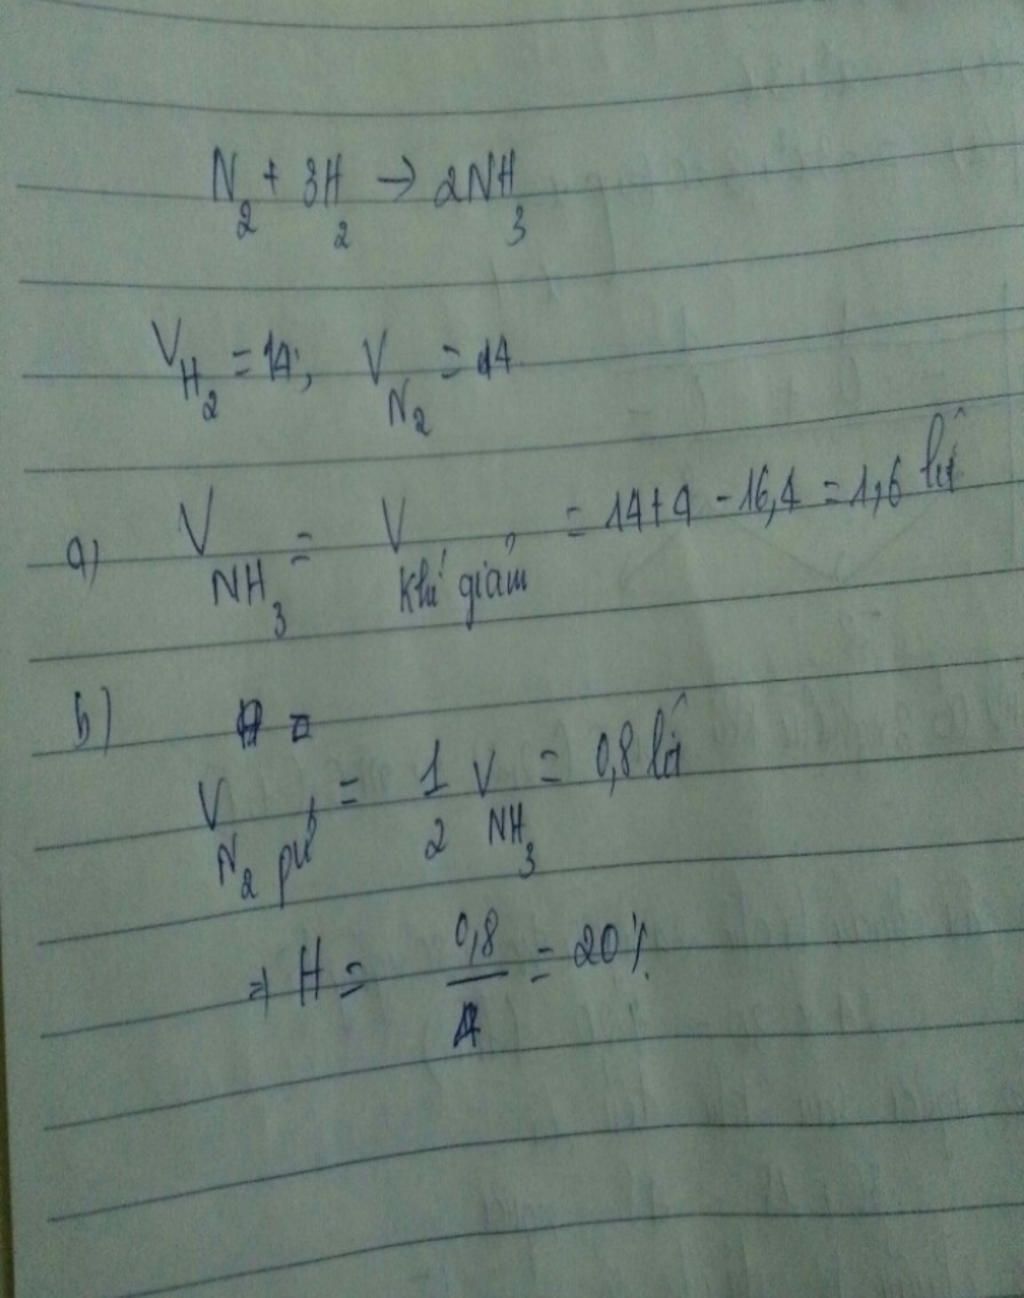 N₂ + 3H₂ → 2NH₃
V_H₂ = 14; V_N₂ = 14
a) V_NH₃ = V_khí giảm = 14+4 - 16,4 = 1,6 lít
b)
V_N₂ pư = 1/2 V_NH₃ = 0,8 lít
⇒ H = 0,8/4 = 20%